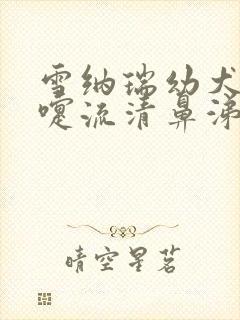 雪纳瑞幼犬
嚏流清鼻涕
晴空星茗